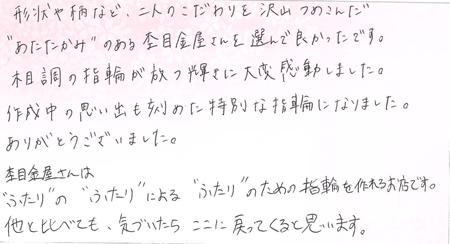 形状や柄など、二人のこだわりを沢山つめこんだ
"あたたかみ"のある杢目金屋さんを選んで良かったです。
木目調の指輪が放つ輝きに大変感動しました。
作成中の思い出も刻めた特別な指輪になりました。
ありがとうございました。
杢目金屋さんは
"ふたり"の"ふたり"による"ふたり"のための指輪を作れるお店です。
他と比べても、気づいたらここに戻ってくると思います。